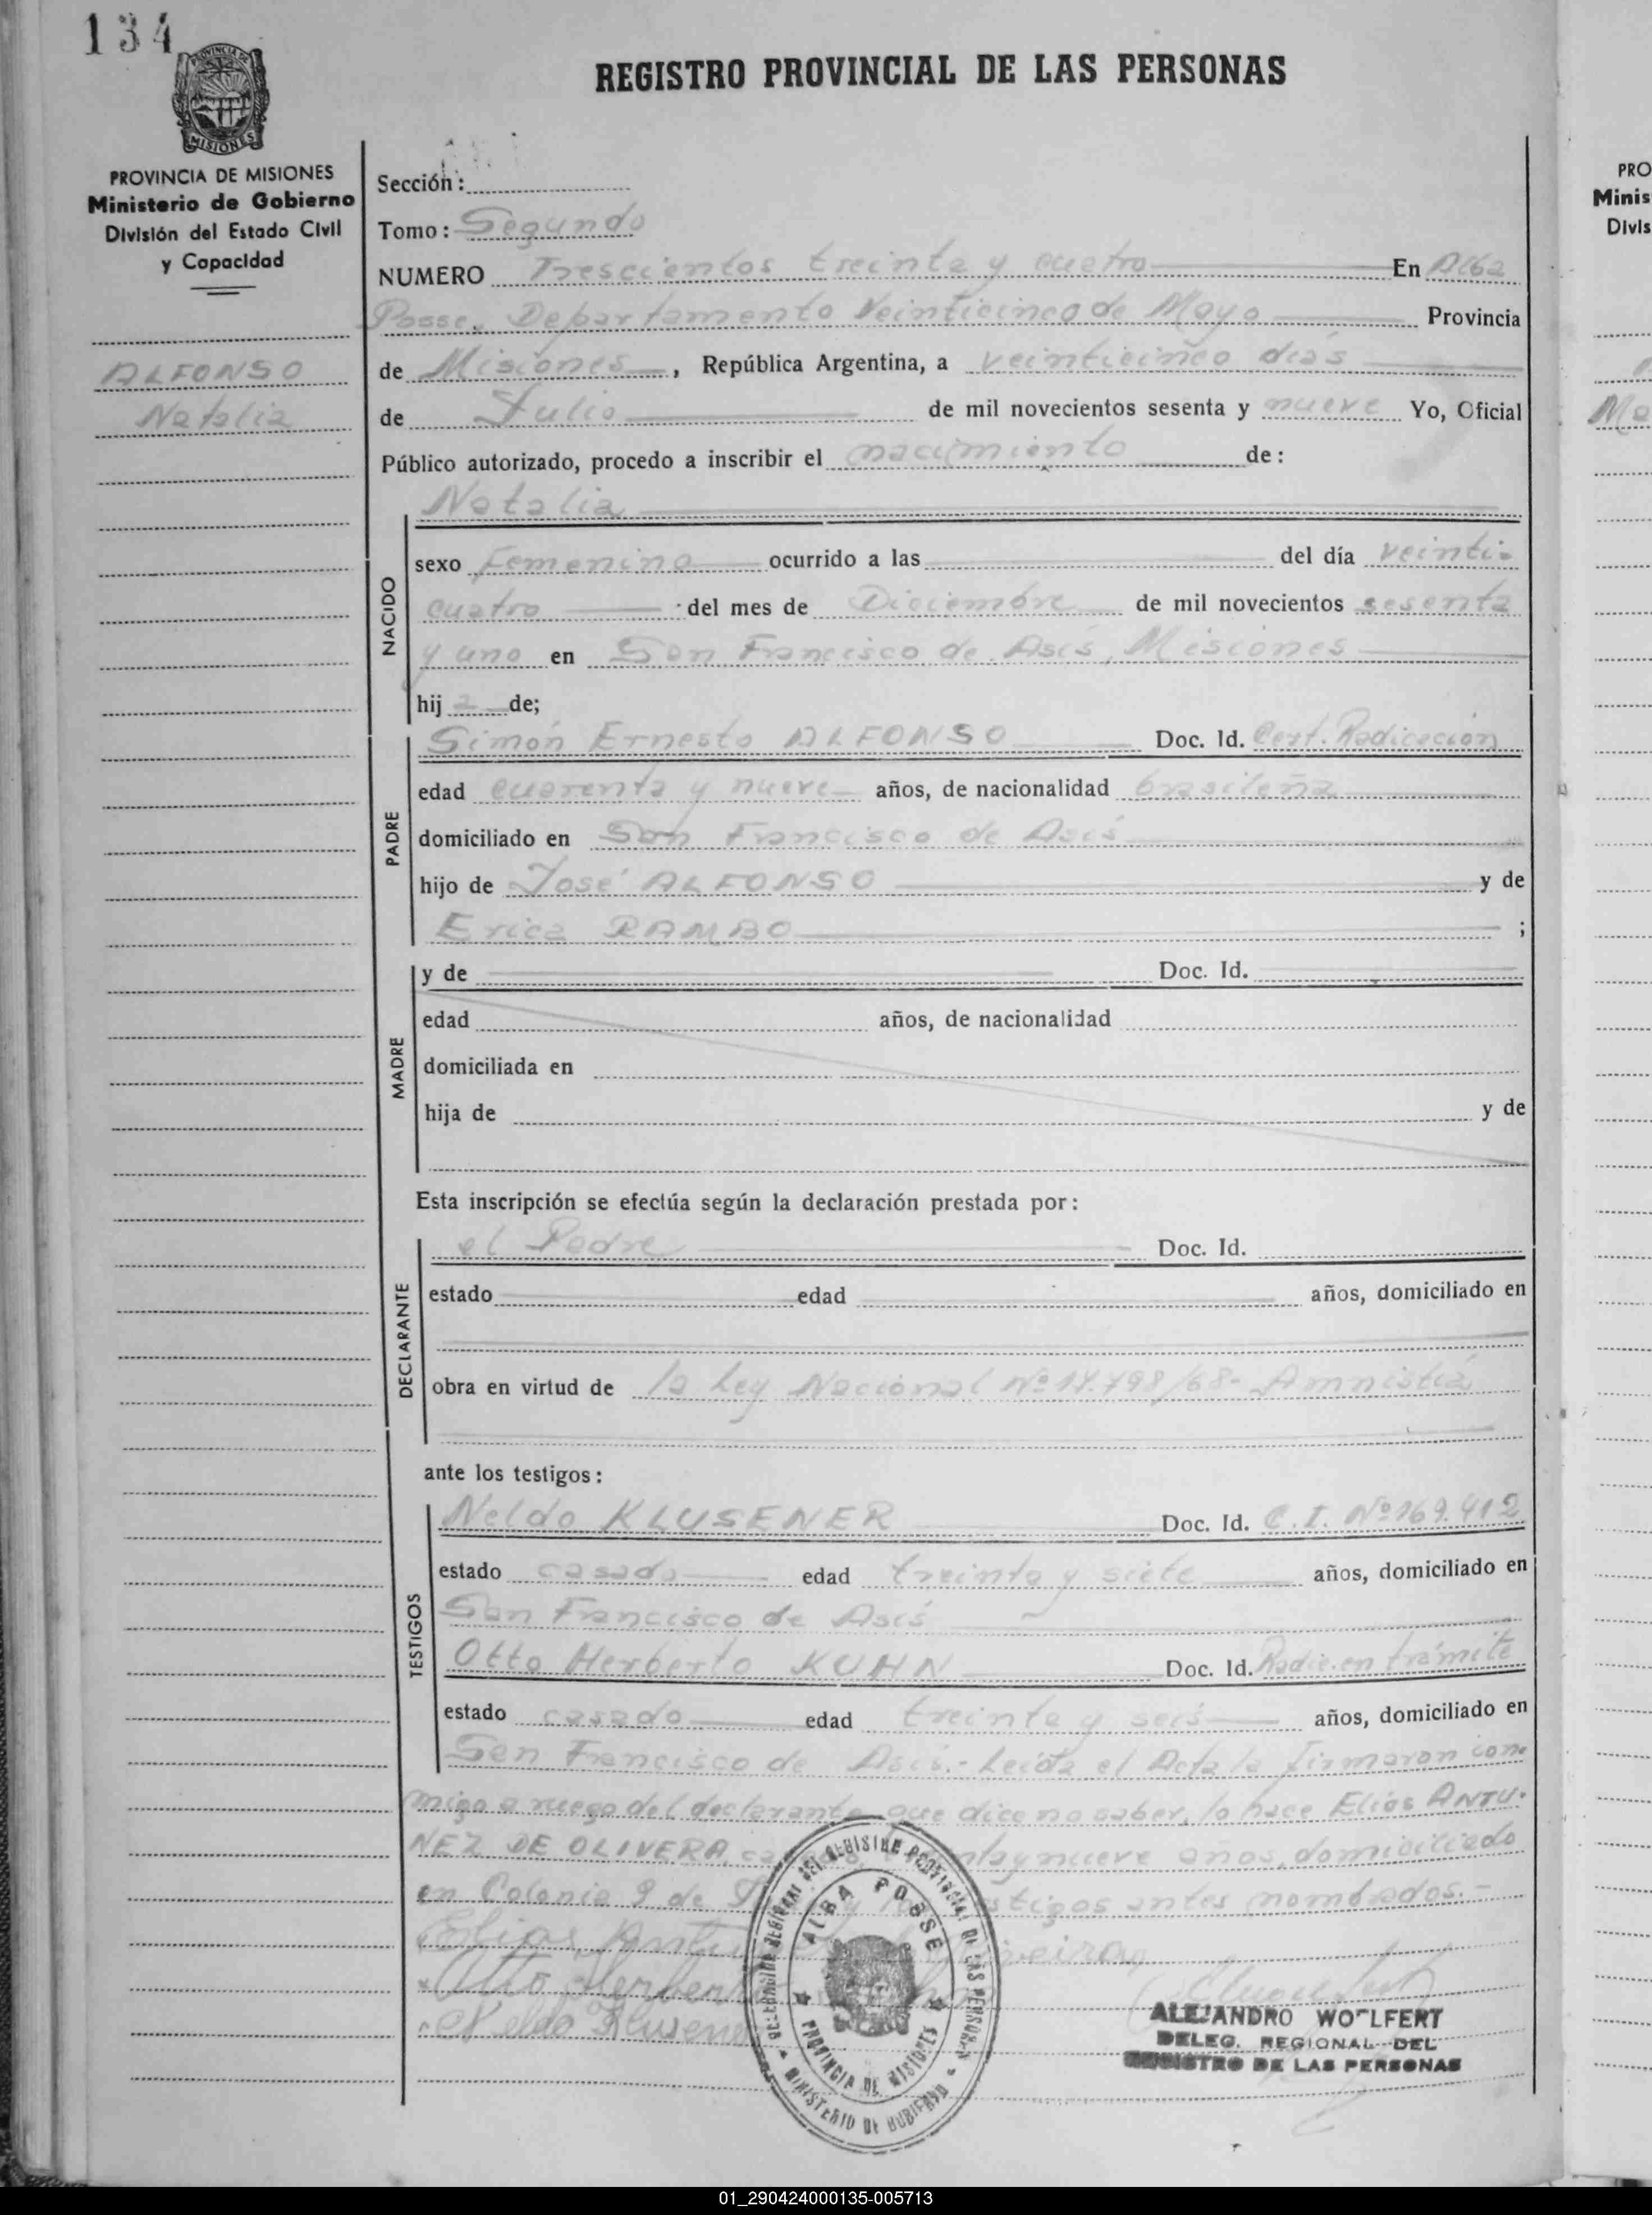 134
PROVINCIA DE
MISIONES
REGISTRO PROVINCIAL DE LAS PERSONAS
PROVINCIA DE MISIONES
Ministerio de Gobierno
División del Estado Civil
y Capacidad
ALFONSO
Natalia
Sección:
Tomo: Segundo
NUMERO Trescientos treinta y cuatro En Alba
Posse, Departamento Veinticinco de Mayo Provincia
de Misiones, República Argentina, a veinticinco días
de Julio de mil novecientos sesenta y nueve Yo, Oficial
Público autorizado, procedo a inscribir el nacimiento de:
NACIDO
Natalia
sexo Femenino ocurrido a las del día veinti-
cuatro del mes de Diciembre de mil novecientos sesenta
y uno en San Francisco de Asís, Misiones
hij a de;
PADRE
Simón Ernesto ALFONSO Doc. Id. Cert. Radicación
edad cuarenta y nueve años, de nacionalidad brasileña
domiciliado en San Francisco de Asís
hijo de José ALFONSO y de
Erica RAMBO ;
MADRE
y de Doc. Id.
edad años, de nacionalidad
domiciliada en
hija de y de
Esta inscripción se efectúa según la declaración prestada por:
DECLARANTE
el Padre Doc. Id.
estado edad años, domiciliado en
obra en virtud de la Ley Nacional Nº 17.798/68- Amnistía
ante los testigos:
TESTIGOS
Neldo KLUSENER Doc. Id. C.I. Nº 169.412
estado casado edad treinta y siete años, domiciliado en
San Francisco de Asís
Otto Herberto KUHN Doc. Id. Radic. en trámite
estado casado edad treinta y seis años, domiciliado en
San Francisco de Asís.- Leída el Acta la firmaron con-
migo a ruego del declarante que dice no saber, lo hace Elías ANTU-
NEZ DE OLIVERA, y nueve años, domiciliado
en Colonia 9 de y antes nombrados.-
Elias
Otto Herbert
Neldo Klusener
ALBA POSSE
PROVINCIA DE MISIONES
MINISTERIO DE GOBIERNO
ALEJANDRO WOLFERT
DELEG. REGIONAL DEL
REGISTRO DE LAS PERSONAS
PRO
Minis
Divis
01_290424000135-005713